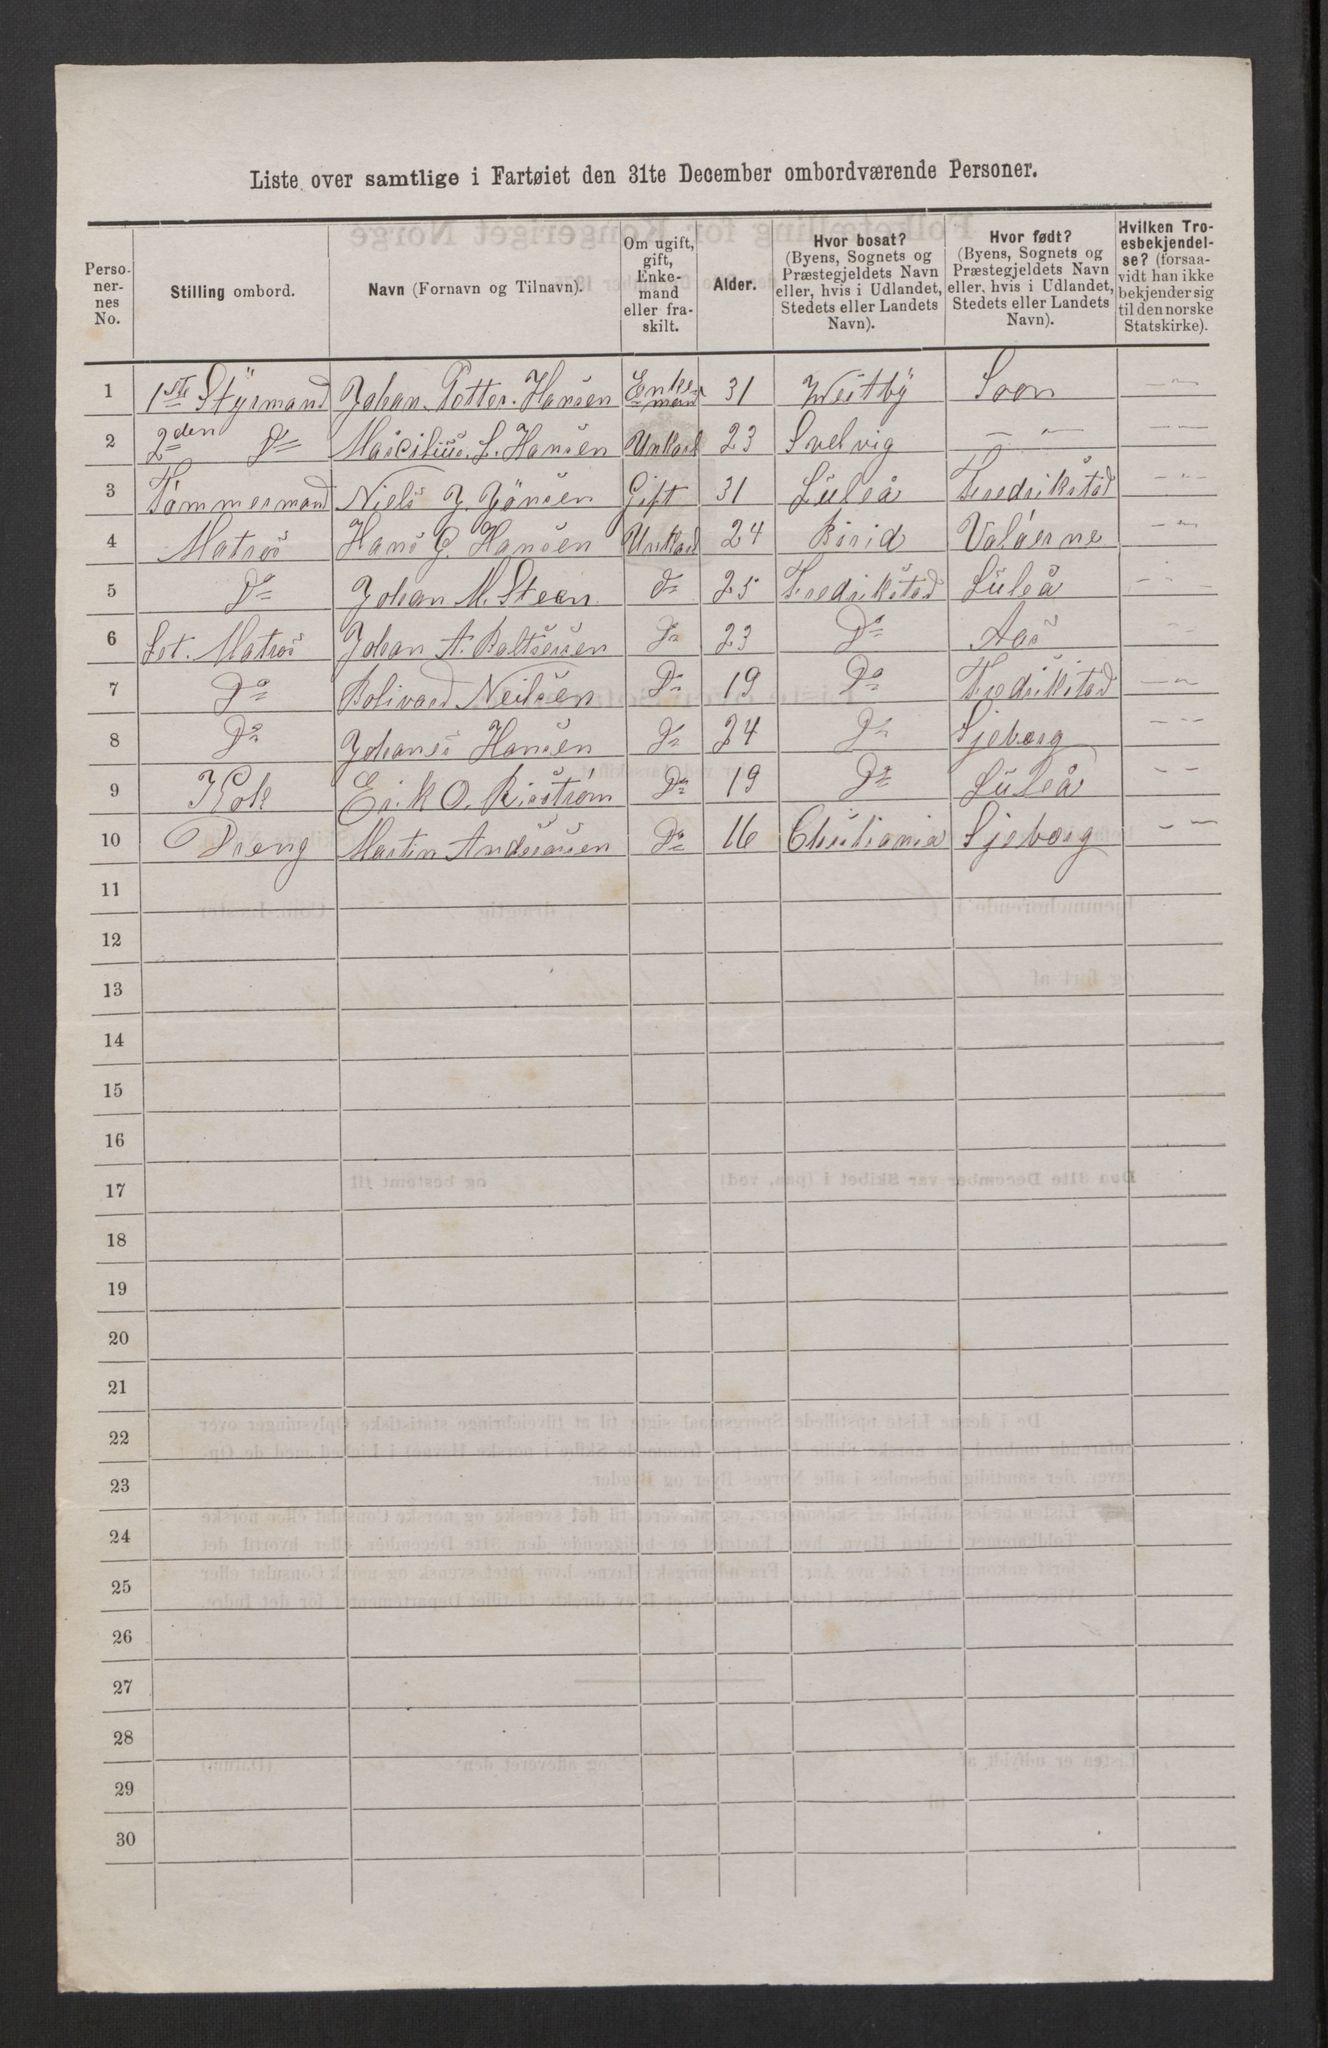 Liste over samtlige i Fartøiet den 31te December ombordværende Personer.
Perso-nernes No. | Stilling ombord. | Navn (Fornavn og Tilnavn). | Om ugift, gift, Enkemand eller fraskilt. | Alder. | Hvor bosat? (Byens, Sognets og Præstegjeldets Navn eller, hvis i Udlandet, Stedets eller Landets Navn). | Hvor født? (Byens, Sognets og Præstegjeldets Navn eller, hvis i Udlandet, Stedets eller Landets Navn). | Hvilken Troesbekjendelse? (forsaavidt han ikke bekjender sig til den norske Statskirke).
1 1ste Styrmand Johan Petter Hansen Enkemand 31 Westby Soon — " —
2 2den Do Marcilius L. Hansen Unkarl 23 Svelvig — " — — " —
3 Tømmermand Niels J. Jönsen Gift 31 Luleå Fredrikstad — " —
4 Matros Hans G. Hansen Unkarl 24 Birid Valöerne — " —
5 Do Johan M. Steen do 25 Fredrikstad Luleå — " —
6 Let. Matros Johan A. Baltsersen Do 23 Do Aas — " —
7 Do Bolivard Neilsen Do 19 Do Fredrikstad — " —
8 Do Johanes Hansen Do 24 Do Sjeborg — " —
9 Kok Erik O. Riström Do 19 Do Luleå — " —
10 Dreng Martin Anderssen Do 16 Christiania Sjeborg — " —
11
12
13
14
15
16
17
18
19
20
21
22
23
24
25
26
27
28
29
30